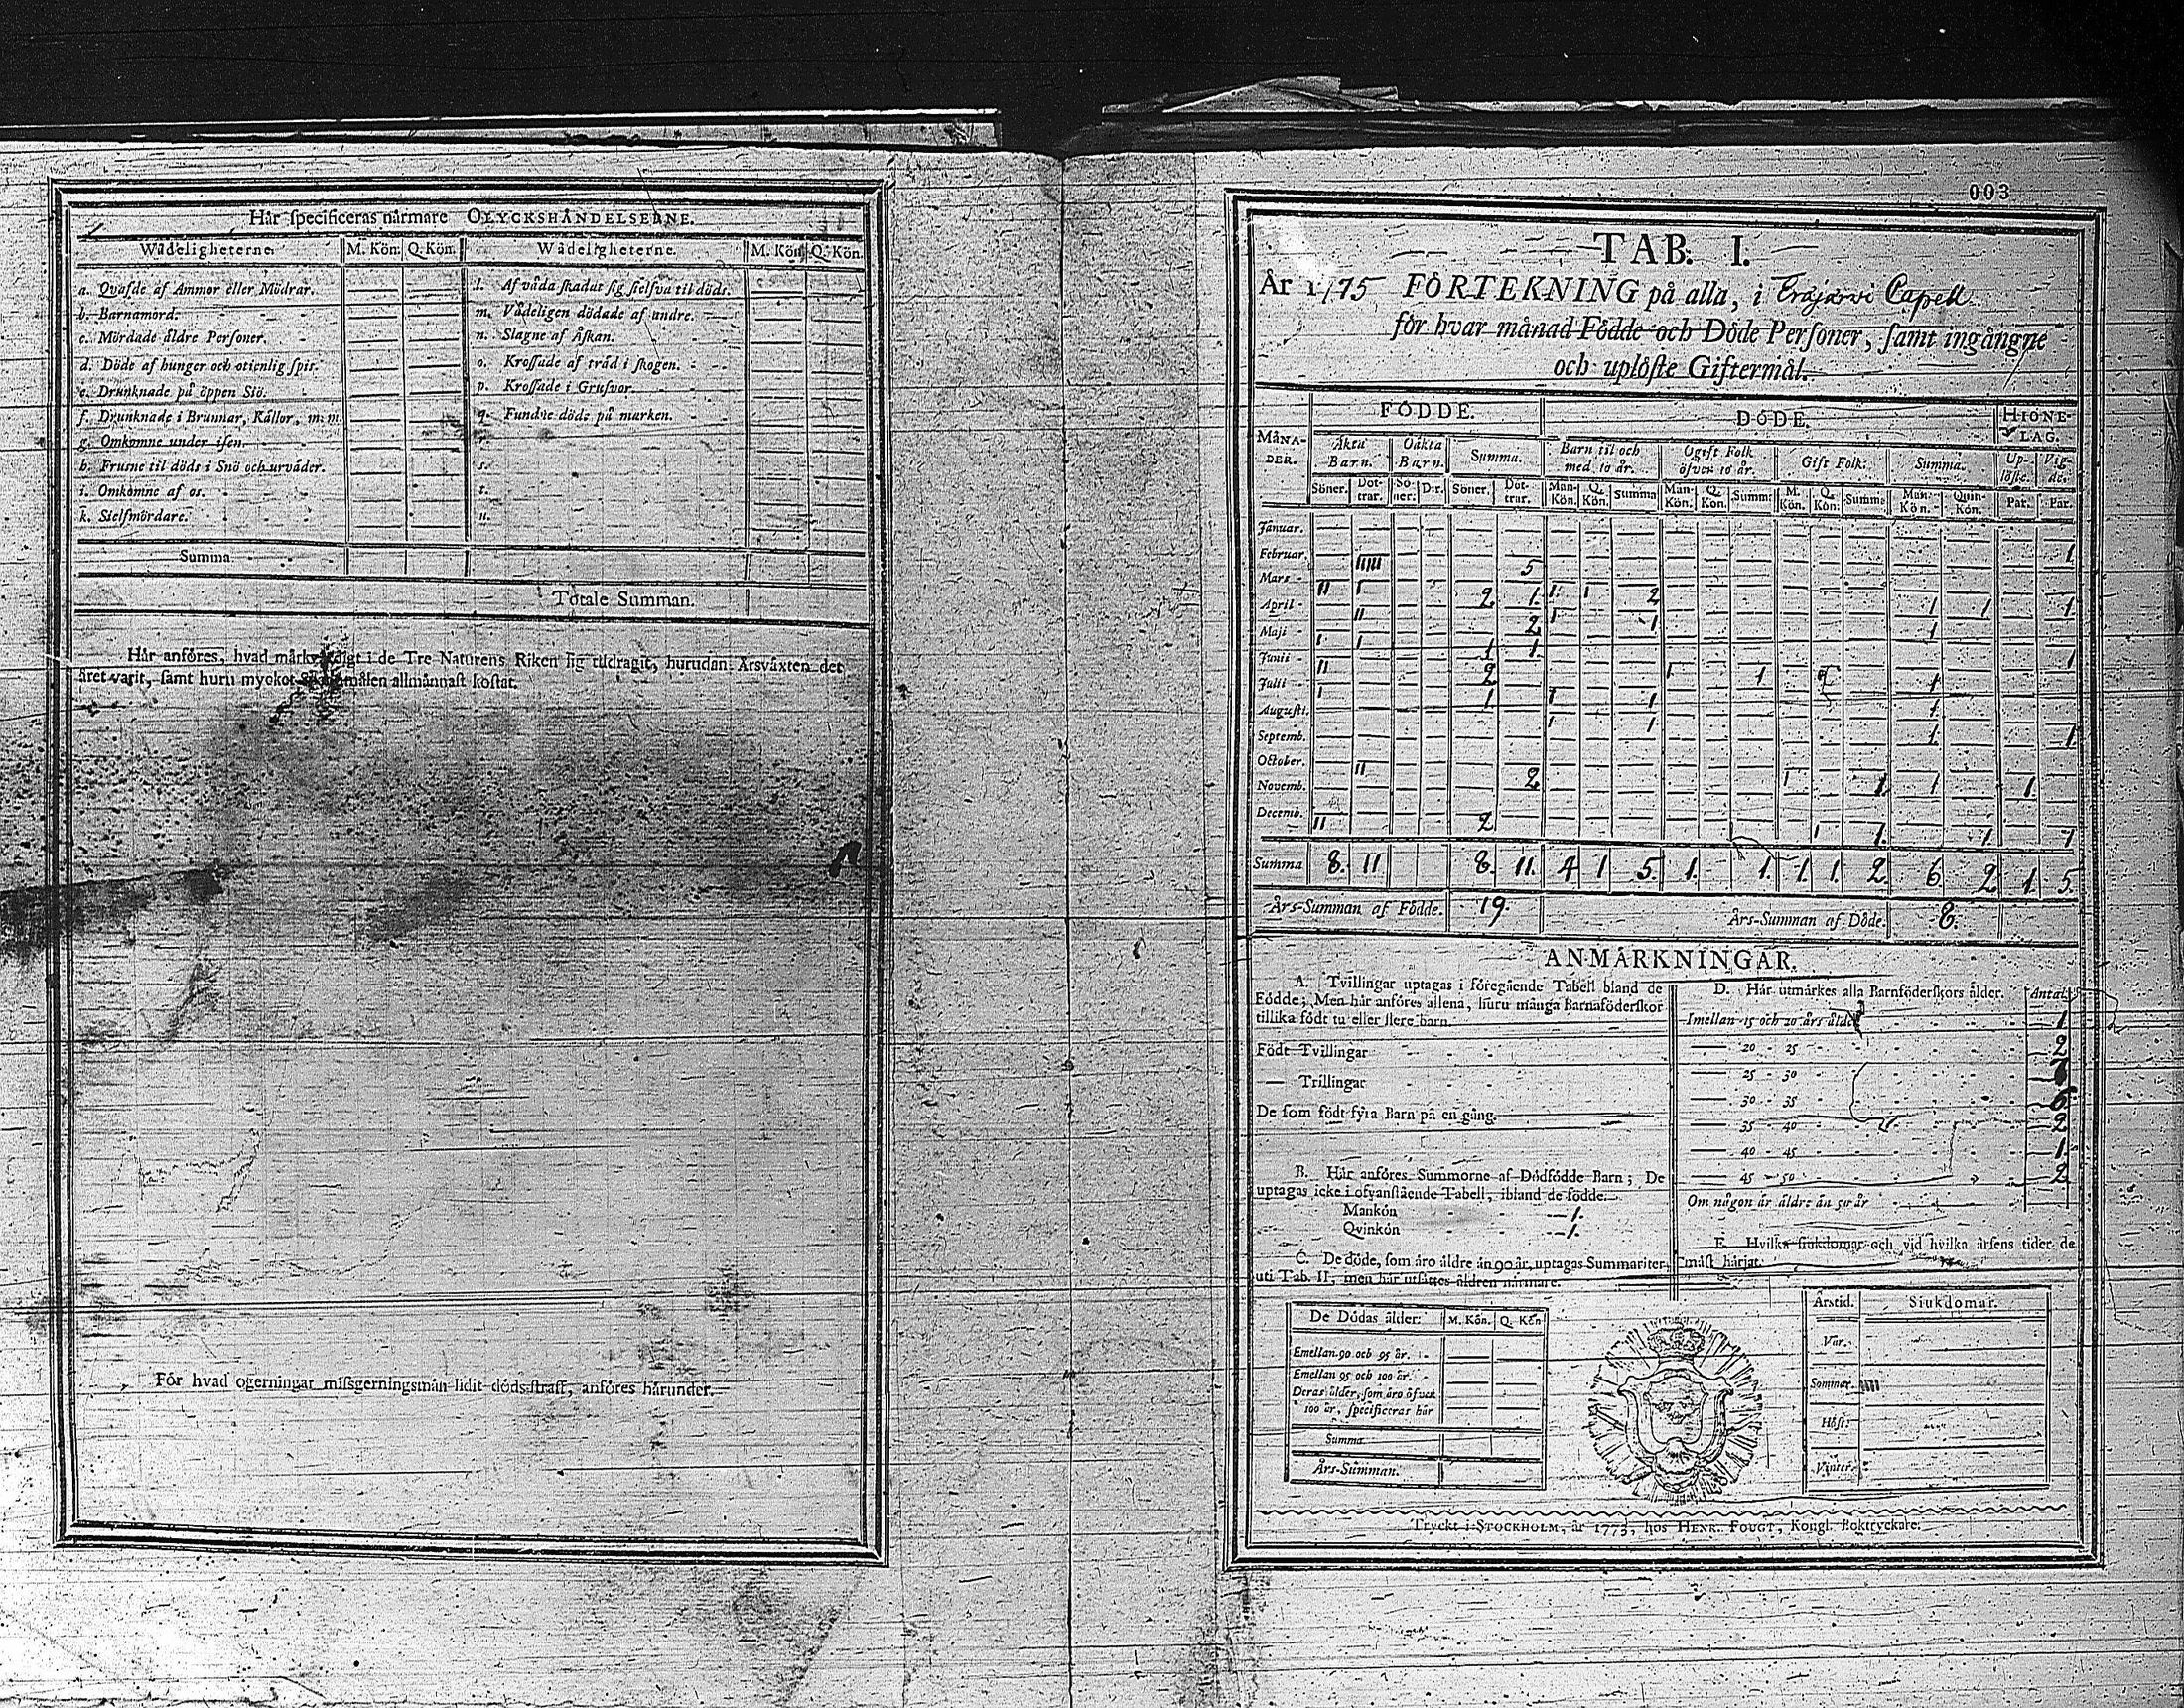 Här specificeras närmare OLYCKSHÄNDELSERNE.
Wådeligheterne. M. Kön. Q. Kön. Wådeligheterne. M. Kön. Q. Kön.
a. Qvafde af Ammor eller Mödrar. l. Af våda skadat sig sielfva til döds.
b. Barnamord. m. Vådeligen dödade af andre.
c. Mördade äldre Personer. n. Slagne af Åskan.
d. Döde af hunger och otienlig spis. o. Krossade af träd i skogen.
e. Drunknade på öppen Siö. p. Krossade i Grufvor.
f. Drunknade i Brunnar, Källor, m. m. q. Fundne döde på marken.
g. Omkomne under isen.
h. Frusne til döds i Snö och urväder. s.
i. Omkomne af os. t.
k. Sielfmördare. u.
Summa
Totale Summan.
Här anföres, hvad märkvärdigt i de Tre Naturens Riken sig tildragit, hurudan Årsväxten det
året varit, samt huru mycket målen allmännast kostat.
För hvad ogerningar missgerningsmän lidit dödsstraff, anföres härunder.
003
TAB. I.
År 1775 FÖRTEKNING på alla, i Eräjärvi Capell
för hvar månad Födde och Döde Personer, samt ingångne
och uplöste Giftermål.
MÅNADER. FÖDDE. DÖDE. HIONELAG.
Äkta Barn. Oäkta Barn. Summa. Barn til och med 10 år. Ogift Folk öfver 10 år. Gift Folk. Summa. Uplöste. Vigde.
Söner. Döttrar. Söner. D:r. Söner. Döttrar. Man-Kön. Q. Kön. Summa Man-Kön. Q. Kön. Summa M. Kön. Q. Kön. Summa Man-Kön. Quin-Kön. Par. Par.
Januar.
Februar. 1
IIIII 5
Mars
II I 2. 1. I I 2 1 1 1
April
II 2 I 1 1
Maji
I I 1 1 1
Junii
II 2 I 1 1
Julii
I 1 I 1 1
Augusti.
I 1 1 1
Septemb.
October.
II 2 I 1 1 1
Novemb.
Decemb.
II 2 I 1. 1 1
Summa 8. 11 8. 11. 4 1 5. 1. 1. 1. 1. 2 6 2 1. 5.
Års-Summan af Födde. 19. Års-Summan af Döde. 8.
ANMÄRKNINGAR.
A. Tvillingar uptagas i föregående Tabell bland de
Födde; Men här anföres allena, huru många Barnaföderskor
tillika födt tu eller flere barn.
Födt Tvillingar
— Trillingar
De som födt fyra Barn på en gång.
B. Här anföres Summorne af Dödfödde Barn; De
uptagas icke i ofvanstående Tabell, ibland de födde.
Mankön 1.
Qvinkön 1.
C. De döde, som äro äldre än 90 år, uptagas Summariter
uti Tab. II, men här utsättes åldren närmare.
D. Här utmärkes alla Barnföderskors ålder. Antal
Imellan 15 och 20 års ålder 1
— 20 - 25 2
— 25 - 30
— 30 - 35
— 35 - 40 2
— 40 - 45 1
— 45 - 50 2
Om någon är äldre än 50 år
E. Hvilka siukdomar och vid hvilka årsens tider de
mäst härjat.
De Dödas ålder. M. Kön. Q. Kön
Emellan 90 och 95 år.
Emellan 95 och 100 år.
Deras ålder, som äro öfver
100 år, specificeras här
Summa
Års-Summan.
Årstid. Siukdomar.
Vår.
Sommar.
Höst.
Vinter.
Tryckt i STOCKHOLM, år 1773, hos HENR. FOUGT, Kongl. Boktryckare.